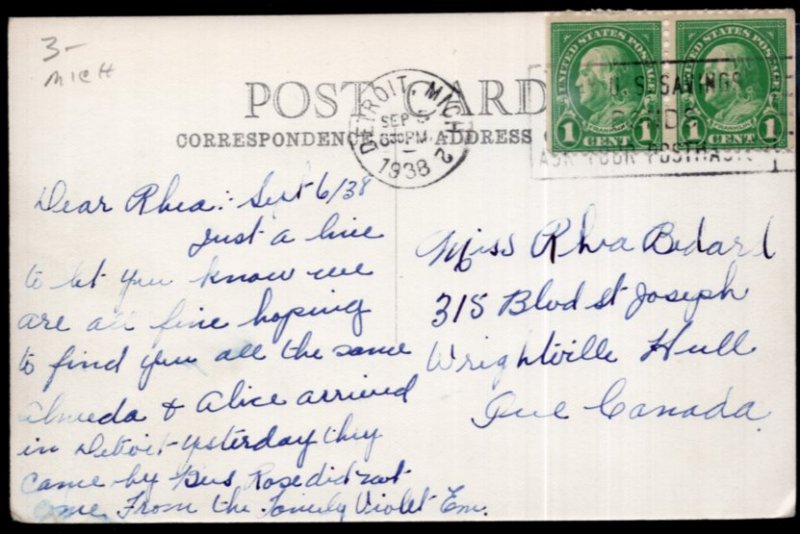 3-
MICH
POST CARD
CORRESPONDENCE ADDRESS
DETROIT, MICH. 2
SEP 5
630 PM
1938
U.S. SAVINGS
BONDS
ASK YOUR POSTMASTER
UNITED STATES POSTAGE
FRANKLIN
1 CENT 1
UNITED STATES POSTAGE
FRANKLIN
1 CENT 1
Dear Rhea: Sept 6/38
Just a line
to let you know we
are all fine hoping
to find you all the same
Almeda & Alice arrived
in Detroit yesterday they
came by Bus Rose did not
come From the Family Violet Em.
Miss Rhea Bedard
315 Blvd st Joseph
Wrightville Hull
Que Canada.